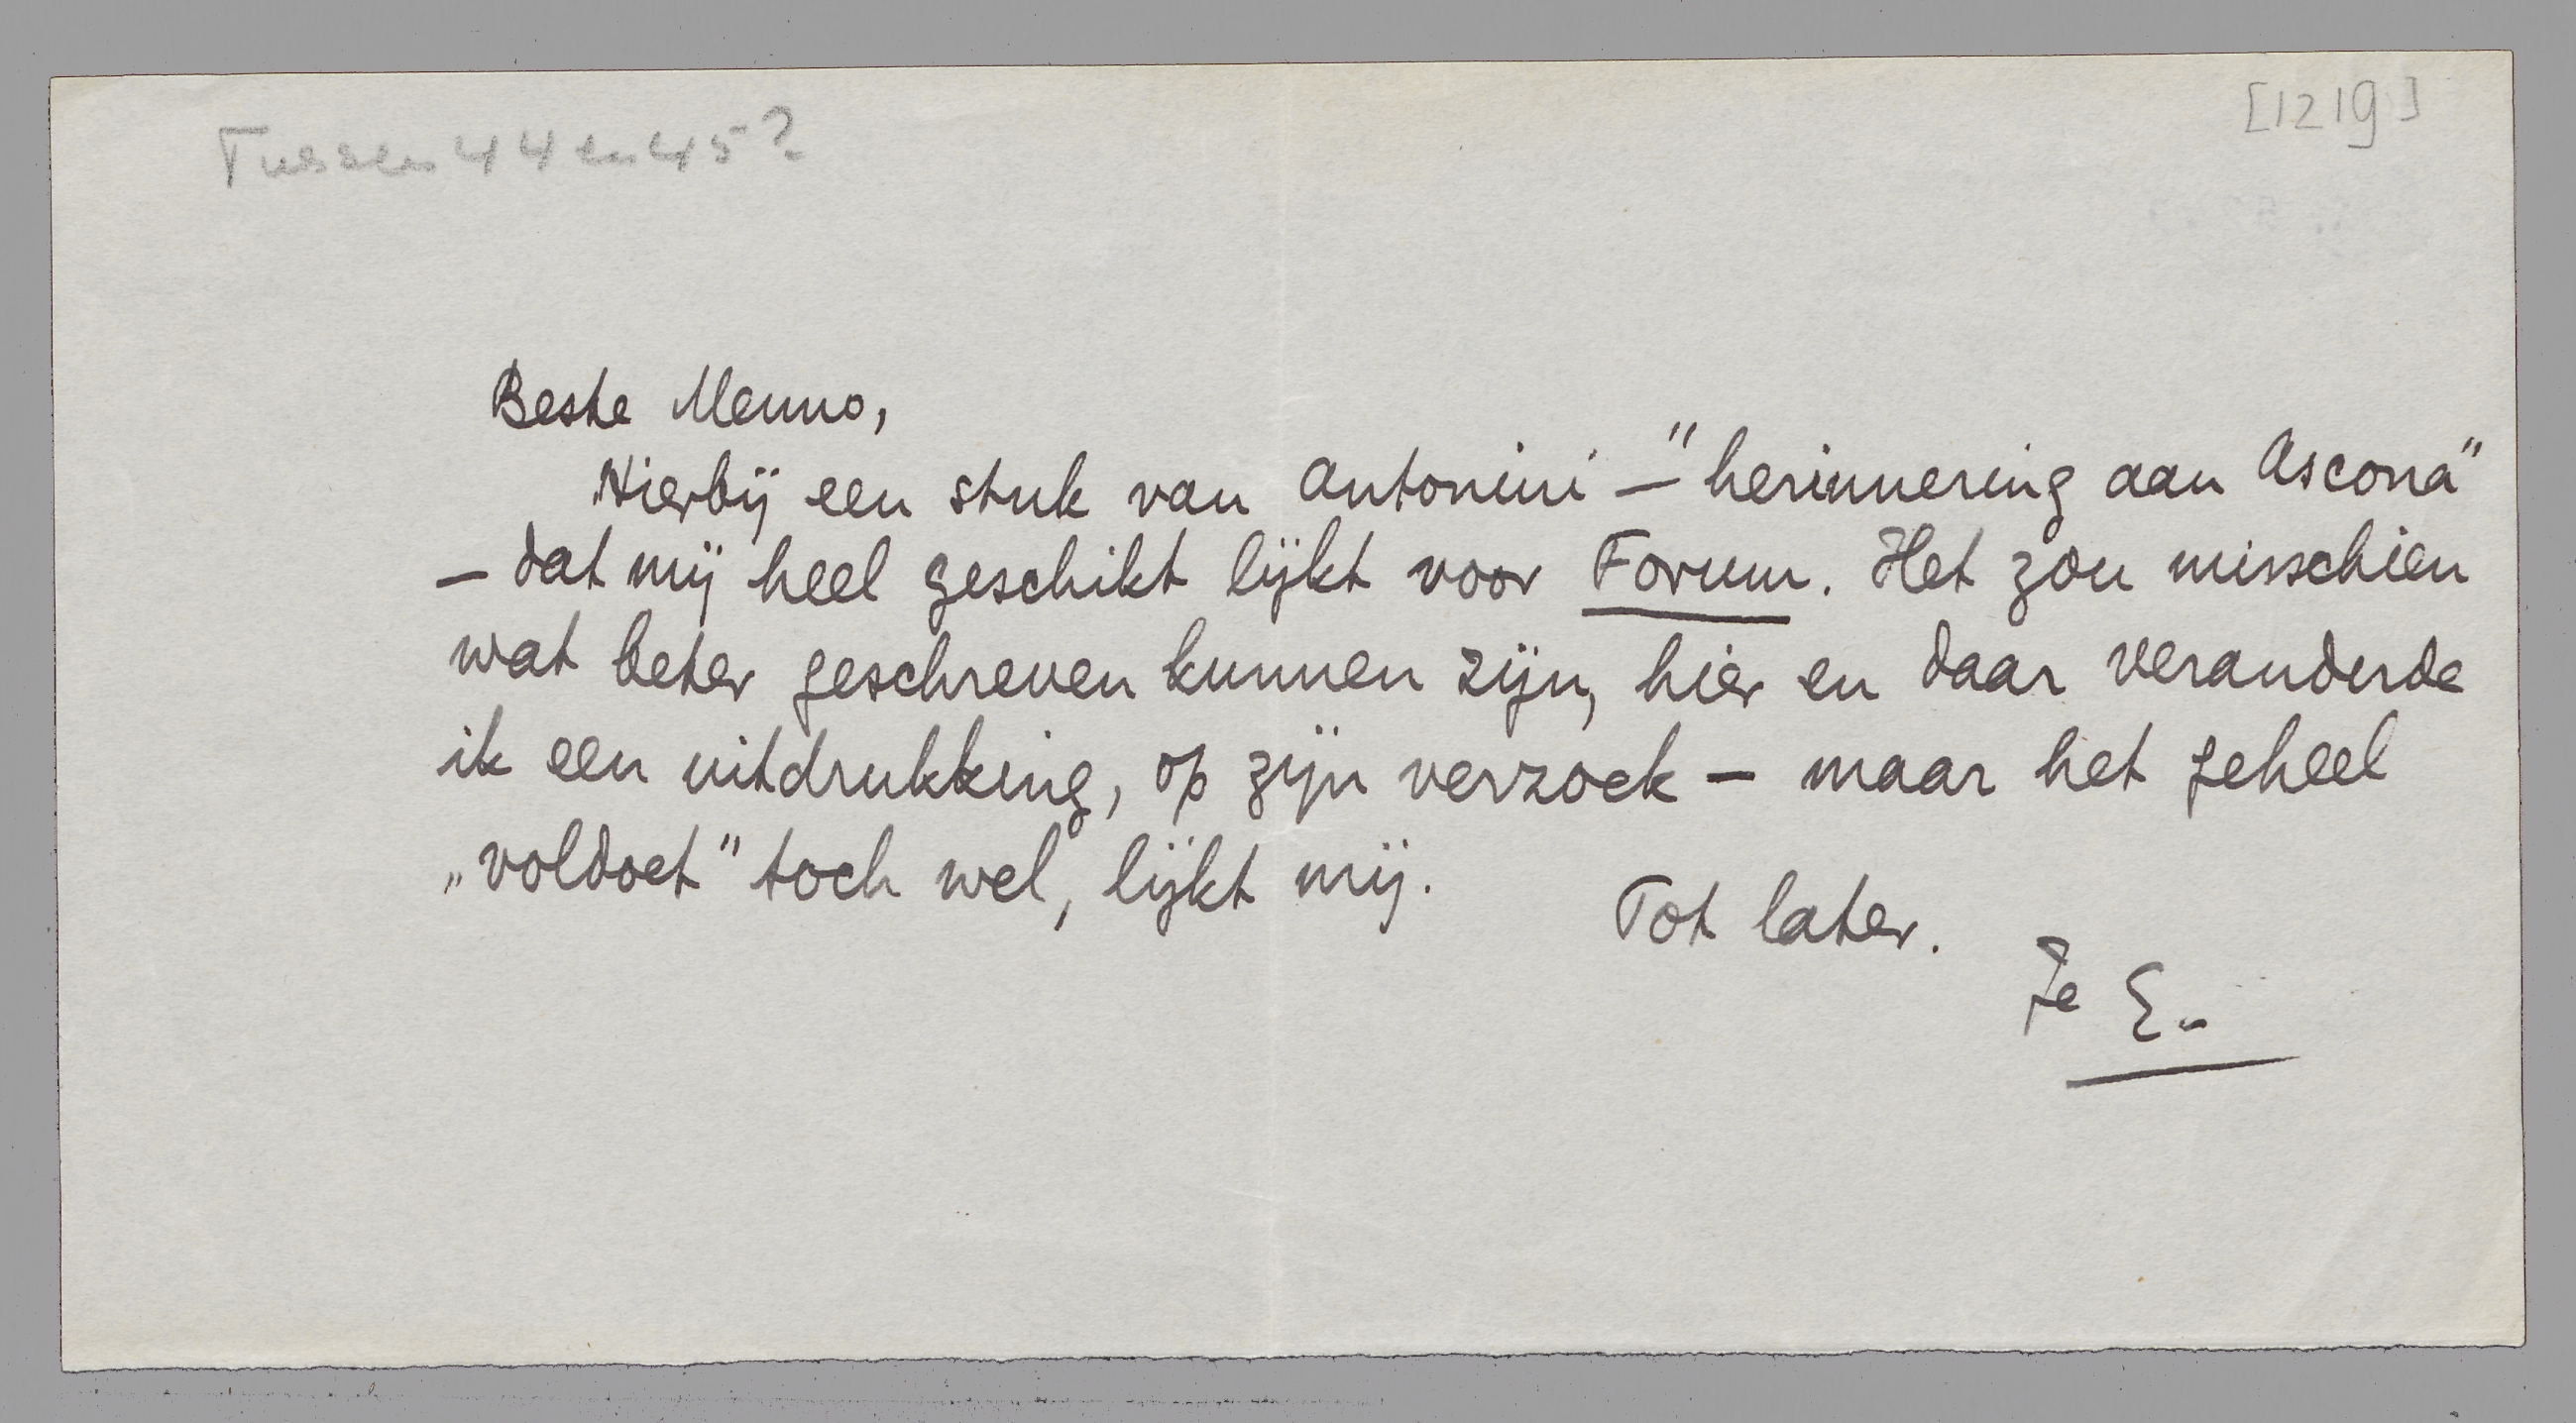 Tussen 44 en 45?
[1219]
Beste Menno,
Hierbij een stuk van Antonini – "herinnering aan Ascona"
– dat mij heel geschikt lijkt voor Forum. Het zou misschien
wat beter geschreven kunnen zijn, hier en daar veranderde
ik een uitdrukking, op zijn verzoek – maar het geheel
„voldoet" toch wel, lijkt mij.
Tot later.
Je E.